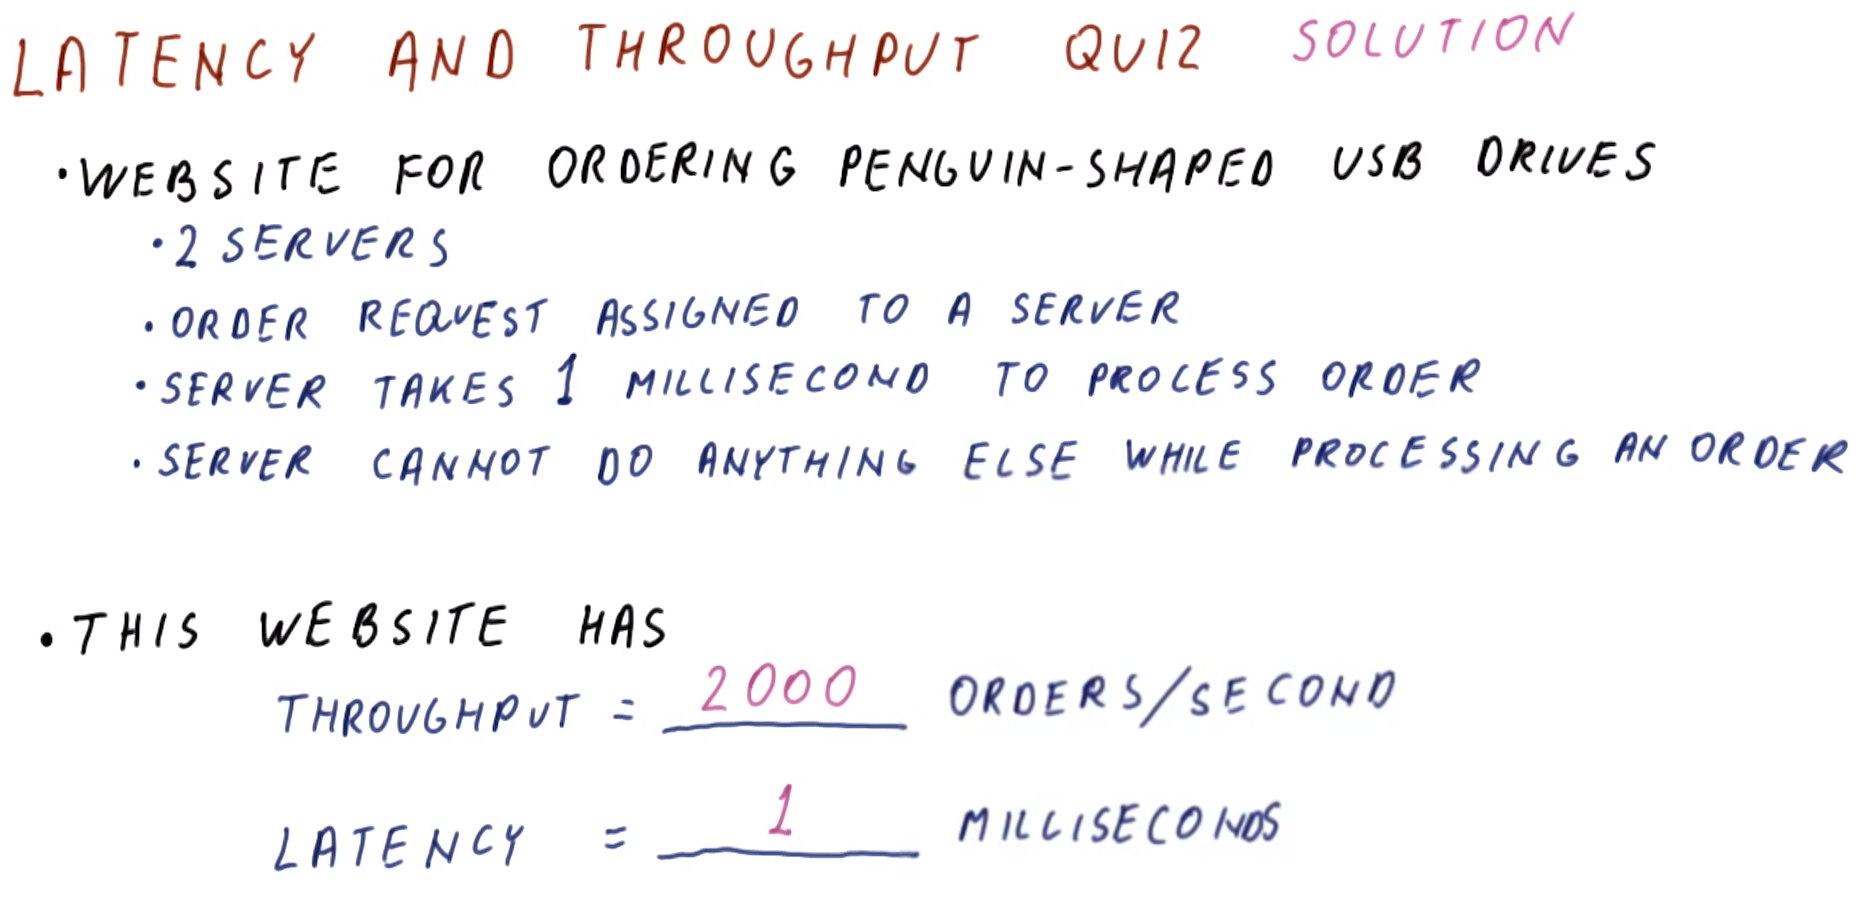 LATENCY AND THROUGHPUT QUIZ SOLUTION
• WEBSITE FOR ORDERING PENGUIN-SHAPED USB DRIVES
• 2 SERVERS
• ORDER REQUEST ASSIGNED TO A SERVER
• SERVER TAKES 1 MILLISECOND TO PROCESS ORDER
• SERVER CANNOT DO ANYTHING ELSE WHILE PROCESSING AN ORDER
• THIS WEBSITE HAS
THROUGHPUT = 2000 ORDERS/SECOND
LATENCY = 1 MILLISECONDS